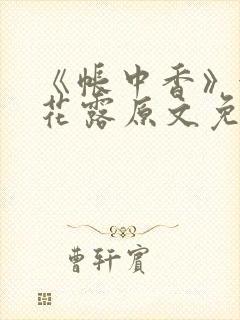 《帐中香》
花露原文免
曹轩宾